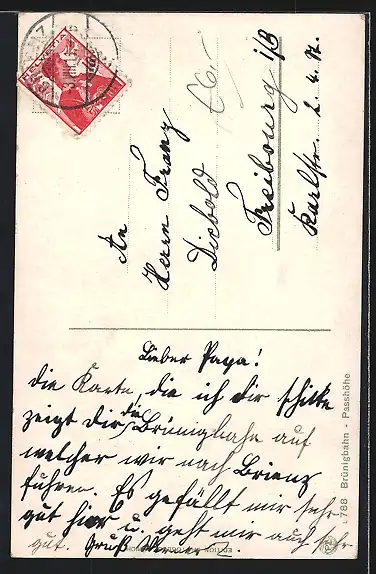 An
Herrn Franz
Diebold
Freibourg i/B
Karlstr. 2.4. St.
Lieber Papa!
die Karte, die ich dir schicke
zeigt dir die Brünigbahn auf
welcher wir nach Brienz
führen. Es gefällt mir sehr
gut hier u. geht mir auch sehr
gut. Gruß
788 Brünigbahn - Passhöhe
HELVETIA